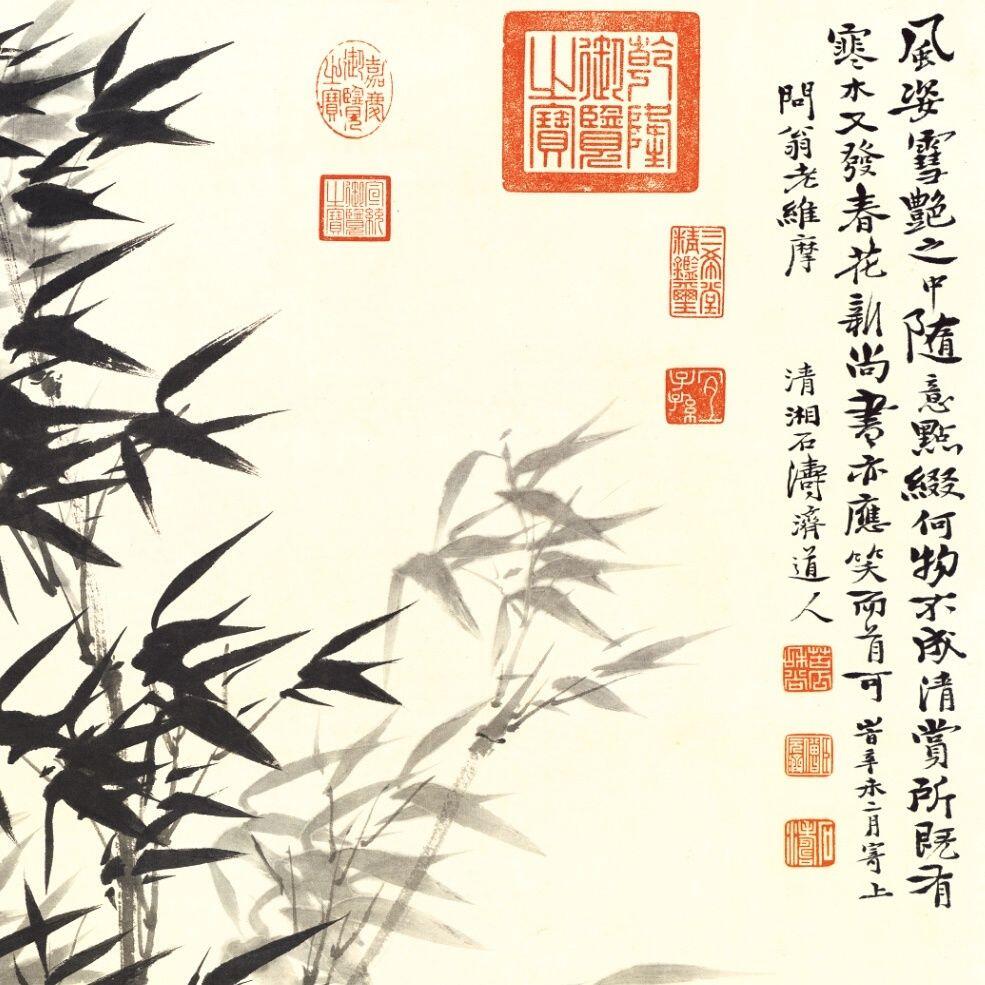 風姿雪艷之中随意點綴何物不成清賞所既有
寒木又發春花新尚書亦應笑而首可 旹辛未二月寄上
問翁老維摩
清湘石濤濟道人
石濤
乾隆御覽之寶
三希堂精鑑璽
宜子孫
嘉慶御覽之寶
宣統御覽之寶